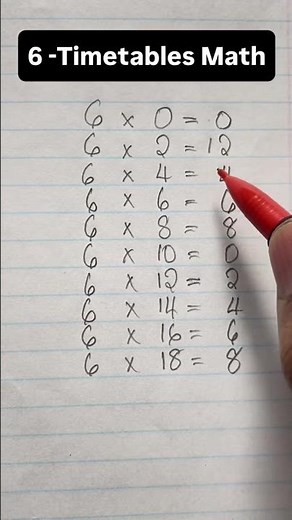 6 -Timetables Math
6 x 0 = 0
6 x 2 = 12
6 x 4 = 4
6 x 6 = 6
6 x 8 = 8
6 x 10 = 0
6 x 12 = 2
6 x 14 = 4
6 x 16 = 6
6 x 18 = 8